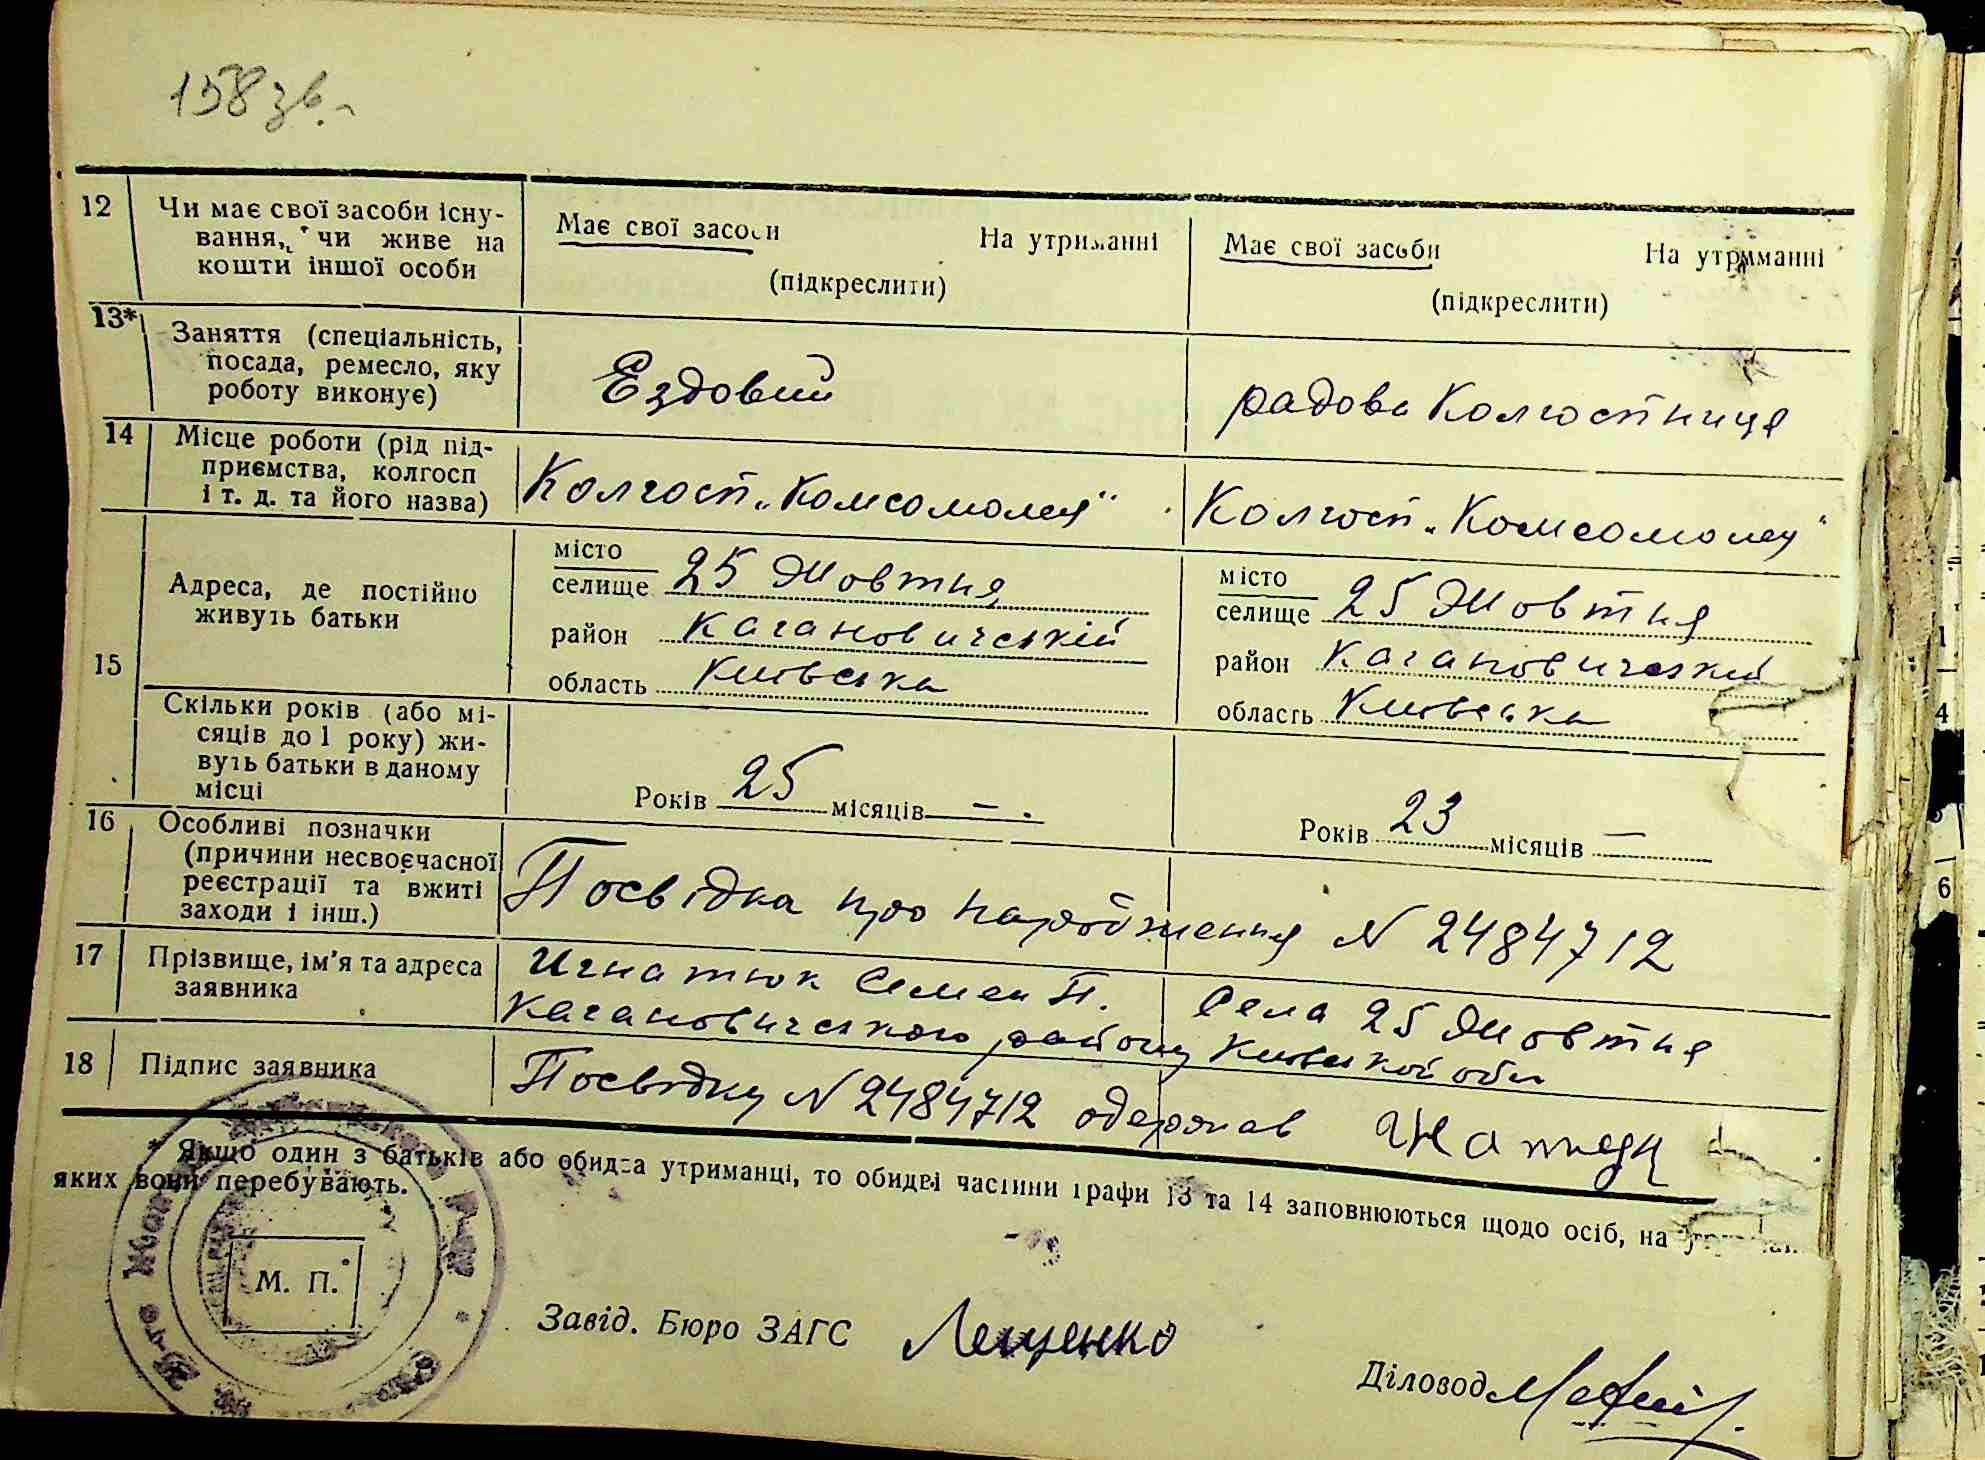 158 зв.
12 Чи має свої засоби існу-
вання, чи живе на
кошти іншої особи
Має свої засоби На утриманні
(підкреслити)
Має свої засоби На утриманні
(підкреслити)
13* Заняття (спеціальність,
посада, ремесло, яку
роботу виконує)
Ездовий
радова Колгостниця
14 Місце роботи (рід під-
приємства, колгосп
і т. д. та його назва)
Колгосп „Комсомолец"
Колгосп „Комсомолец"
15 Адреса, де постійно
живуть батьки
місто
селище 25 Жовтня
район Кагановичський
область Київська
місто
селище 25 Жовтня
район Кагановичский
область Київська
Скільки років (або мі-
сяців до 1 року) жи-
вуть батьки в даному
місці
Років 25 місяців —.
Років 23 місяців —
16 Особливі позначки
(причини несвоєчасної
реєстрації та вжиті
заходи і інш.)
Посвідка про народження N 2484712
17 Прізвище, ім'я та адреса
заявника
Игнатюк Семен П. Села 25 Жовтня
Кагановичського району Київской обл
18 Підпис заявника
Посвідку N 2484712 одержав
* Якщо один з батьків або обидва утриманці, то обидві частини графи 13 та 14 заповнюються щодо осіб, на
яких вони перебувають.
М. П.
Завід. Бюро ЗАГС Лещенко
Діловод